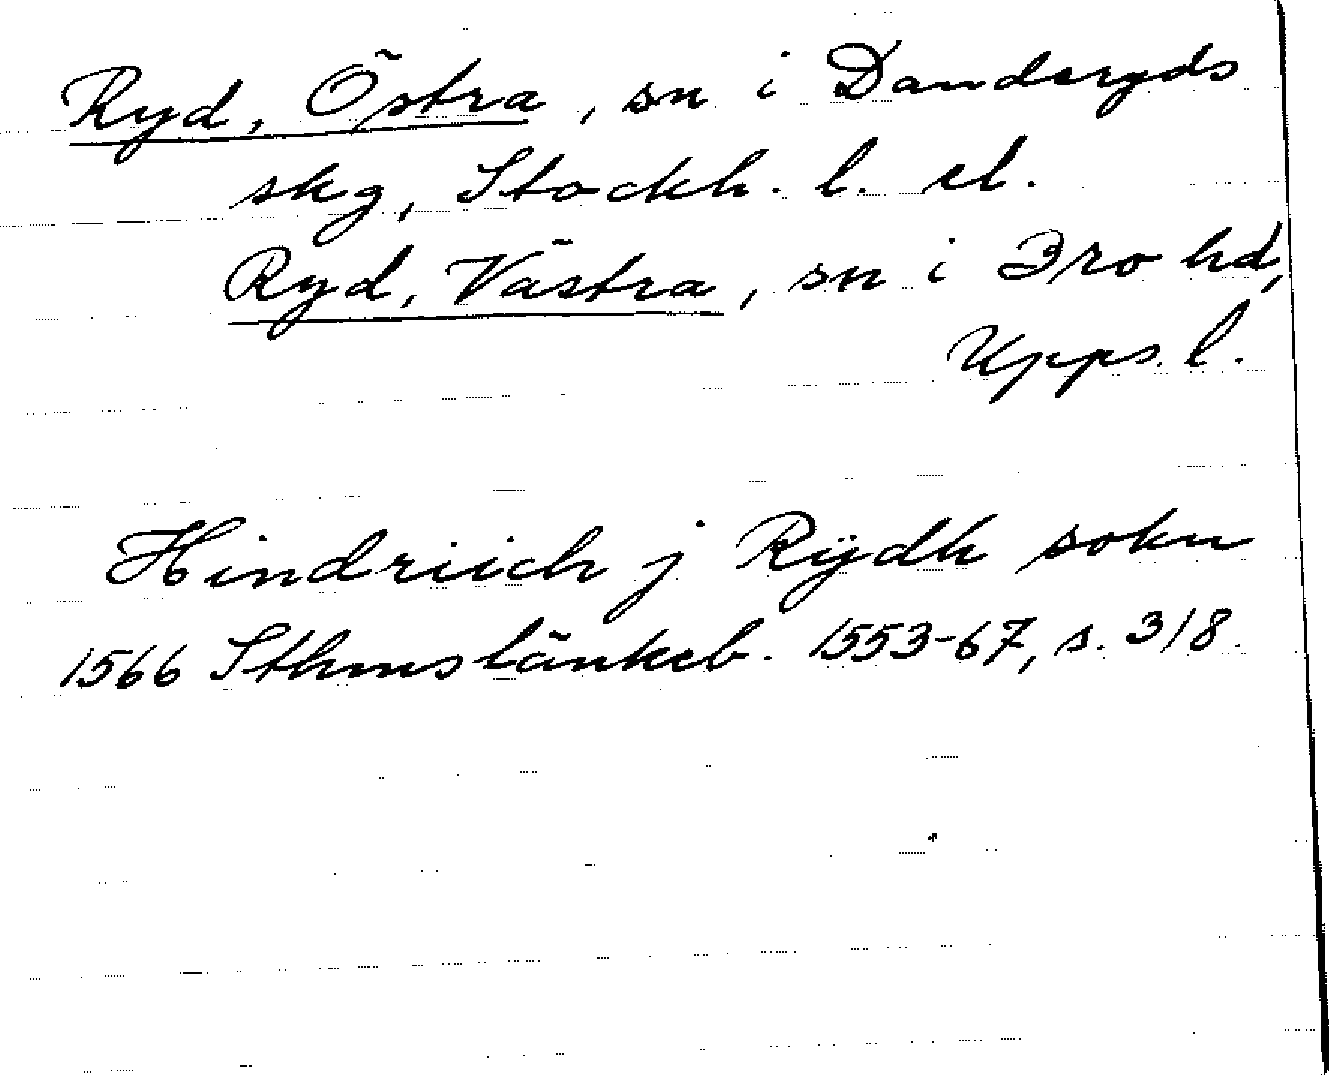 Ryd, Östra, sn i Danderyds
skg, Stockh. l. el.
Ryd, Västra, sn i Bro hd,
Upps. l.
Hindriich j Rÿdh sokn
1566 Sthms tänkeb. 1553-67, s. 318.